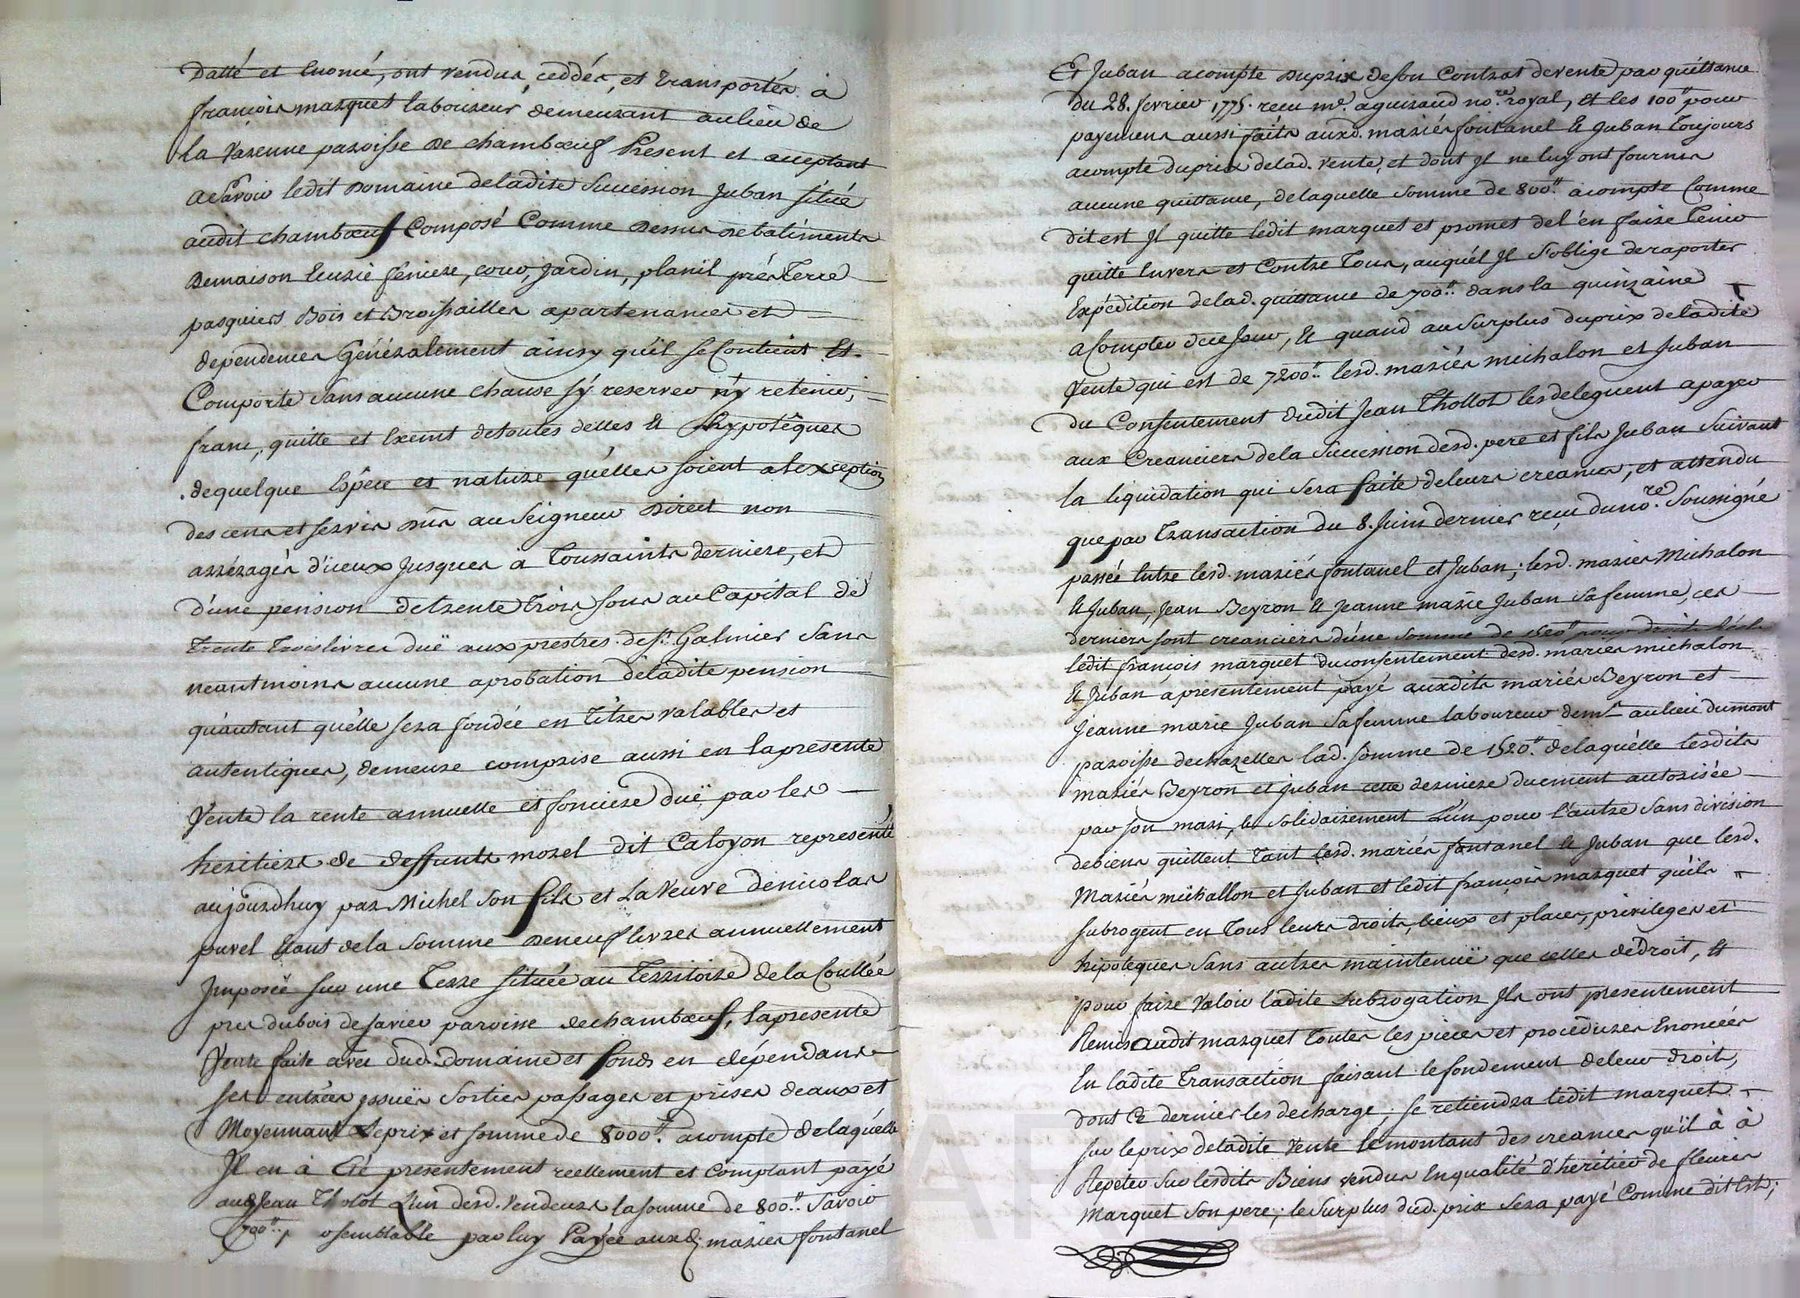 Datté et Enoncé, ont vendus, ceddés, et transportés à
françois marquet laboureur, demeurant au lieu de
La Varenne paroisse de chambœuf Présent et acceptant
a Sçavoir ledit Domaine deladite Succession Juban située
audit chambœuf Composé Comme Dessus de batiments
Demaison Ecurie féniere, cour, Jardin, planil prés Terre
pasquiers Bois et Broissailles apartenances et
dependences Généralement ainsy qu'il se Contient Et
Comporte Sans aucune chause s'y reserver n'y retenir,
franc, quitte et Exemt detoutes dettes Et Hypotêques
de quelque Espêce et nature qu'elles soient a lexseption
des cens et servis Dûs au Seigneur Direct non
arréragés d'iceux Jusques à Toussaints derniere, et
d'une pension detrente trois sous au Capital de
Trente Trois livres duë aux prestres de St. Galmier Sans
neantmoins aucune aprobation deladite pension
qu'autant qu'elle sera fondée en titres valables et
autentiques, demeure comprise aussi en lapresente
Vente la rente annuelle et fonciere duë par les
heritiers de deffunts morel dit Caloyon représenté
aujourdhuy par Michel Son fils et La Veuve denicolas
purel Etant dela Somme Deneuf livres annuellement
Imposée sur une Terre située au Territoire dela Coullée
pres dubois de Javier paroisse dechambœuf, lapresente
Vente faite avec dud. domaine et fonds en dépendans
ses entrées issuës Sorties passages et prises deaux et
Moyennant Leprix et somme de 8000.tt acompte delaquelle
Il en à Eté présentement reellement et Comptant payé
aud. Jean Tholot L'un desd. Vendeurs la somme de 800.tt Savoir
700.tt, semblable par luy Payée auxd. mariés fontanel
Et Juban acompte Duprix deson Contrat devente par quittance
du 28. fevrier 1775. recu me. aguiraud no.re royal, Et les 100.tt pour
payement aussi faits auxd. mariés fontanel Et Juban Toujours
acompte duprix delad. vente, et dont Il ne luy ont fournis
aucune quittance, delaquelle Somme de 800.tt acompte Comme
dit est Il quitte ledit marquet et promet del'en faire tenir
quitte Envers et Contre Tous, auquel Il s'oblige deraporter
Expédition delad. quittance de 700.tt dans la quinzaine
a Compter dece Jour, Et quand au Surplus duprix deladite
Vente qui est de 7200.tt lesd. mariés michalon et Juban
du Consentement dudit Jean Thollot les deleguent apayer
aux Creanciers dela Succession desd. pere et fils Juban Suivant
la liquidation qui sera faite deleurs creances, et attendu
que par Transaction du 8. Juin dernier reçu du no.re Soussigné
passée Entre lesd. mariés fontanel et Juban; lesd. mariés Michalon
Et Juban, Jean Beyron Et Jeanne marie Juban Sa femme, ces
derniers sont creanciers d'une Somme de 1520.tt pour droits
ledit françois marquet du consentement desd. mariés michalon
Et Juban à présentement payé auxdits mariés Beyron et
Jeanne marie Juban Sa femme laboureur demt. au lieu dumont
paroisse dechazelles lad. somme de 1520.tt delaquelle lesdits
mariés Beyron et Juban cette derniere duement autorisée
par son mari, et solidairement L'un pour L'autre Sans division
debiens quittent Tant lesd. mariés fontanel Et Juban que lesd.
Mariés michallon et Juban et ledit françois marquet qu'ils
subrogent en Tous leurs droits, lieux et places, privileges et
hipoteques Sans autres maintenuë que celles dedroit, Et
pour faire Valoir ladite subrogation Ils ont présentement
Remis audit marquet Toutes les pieces et procedures Enoncées
En ladite Transaction faisant le fondement deleur droit,
dont Ce dernier les decharge; se retiendra ledit marquet
sur leprix deladite Vente lemontant des creances qu'il à à
Répéter Sur lesdits Biens vendus Enqualité d'héritier de fleuris
Marquet Son pere; le Surplus dud. prix Sera payé Comme dit Est;